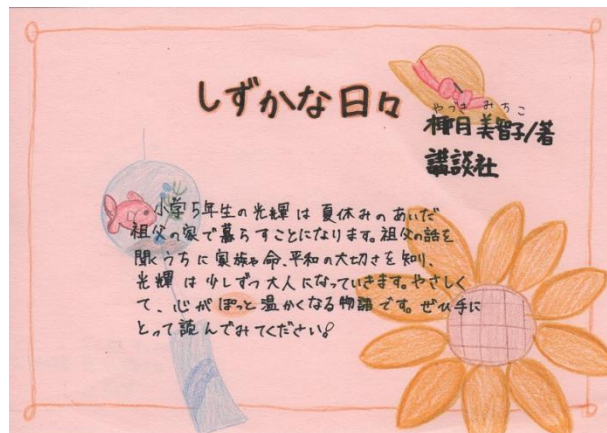 しずかな日々
やづき みちこ
椰月美智子/著
講談社
小学5年生の光輝は夏休みのあいだ
祖父の家で暮らすことになります。祖父の話を
聞くうちに家族や命、平和の大切さを知り、
光輝は少しずつ大人になっていきます。やさしく
て、心がぽっと温かくなる物語です。ぜひ手に
とって読んでみてください!